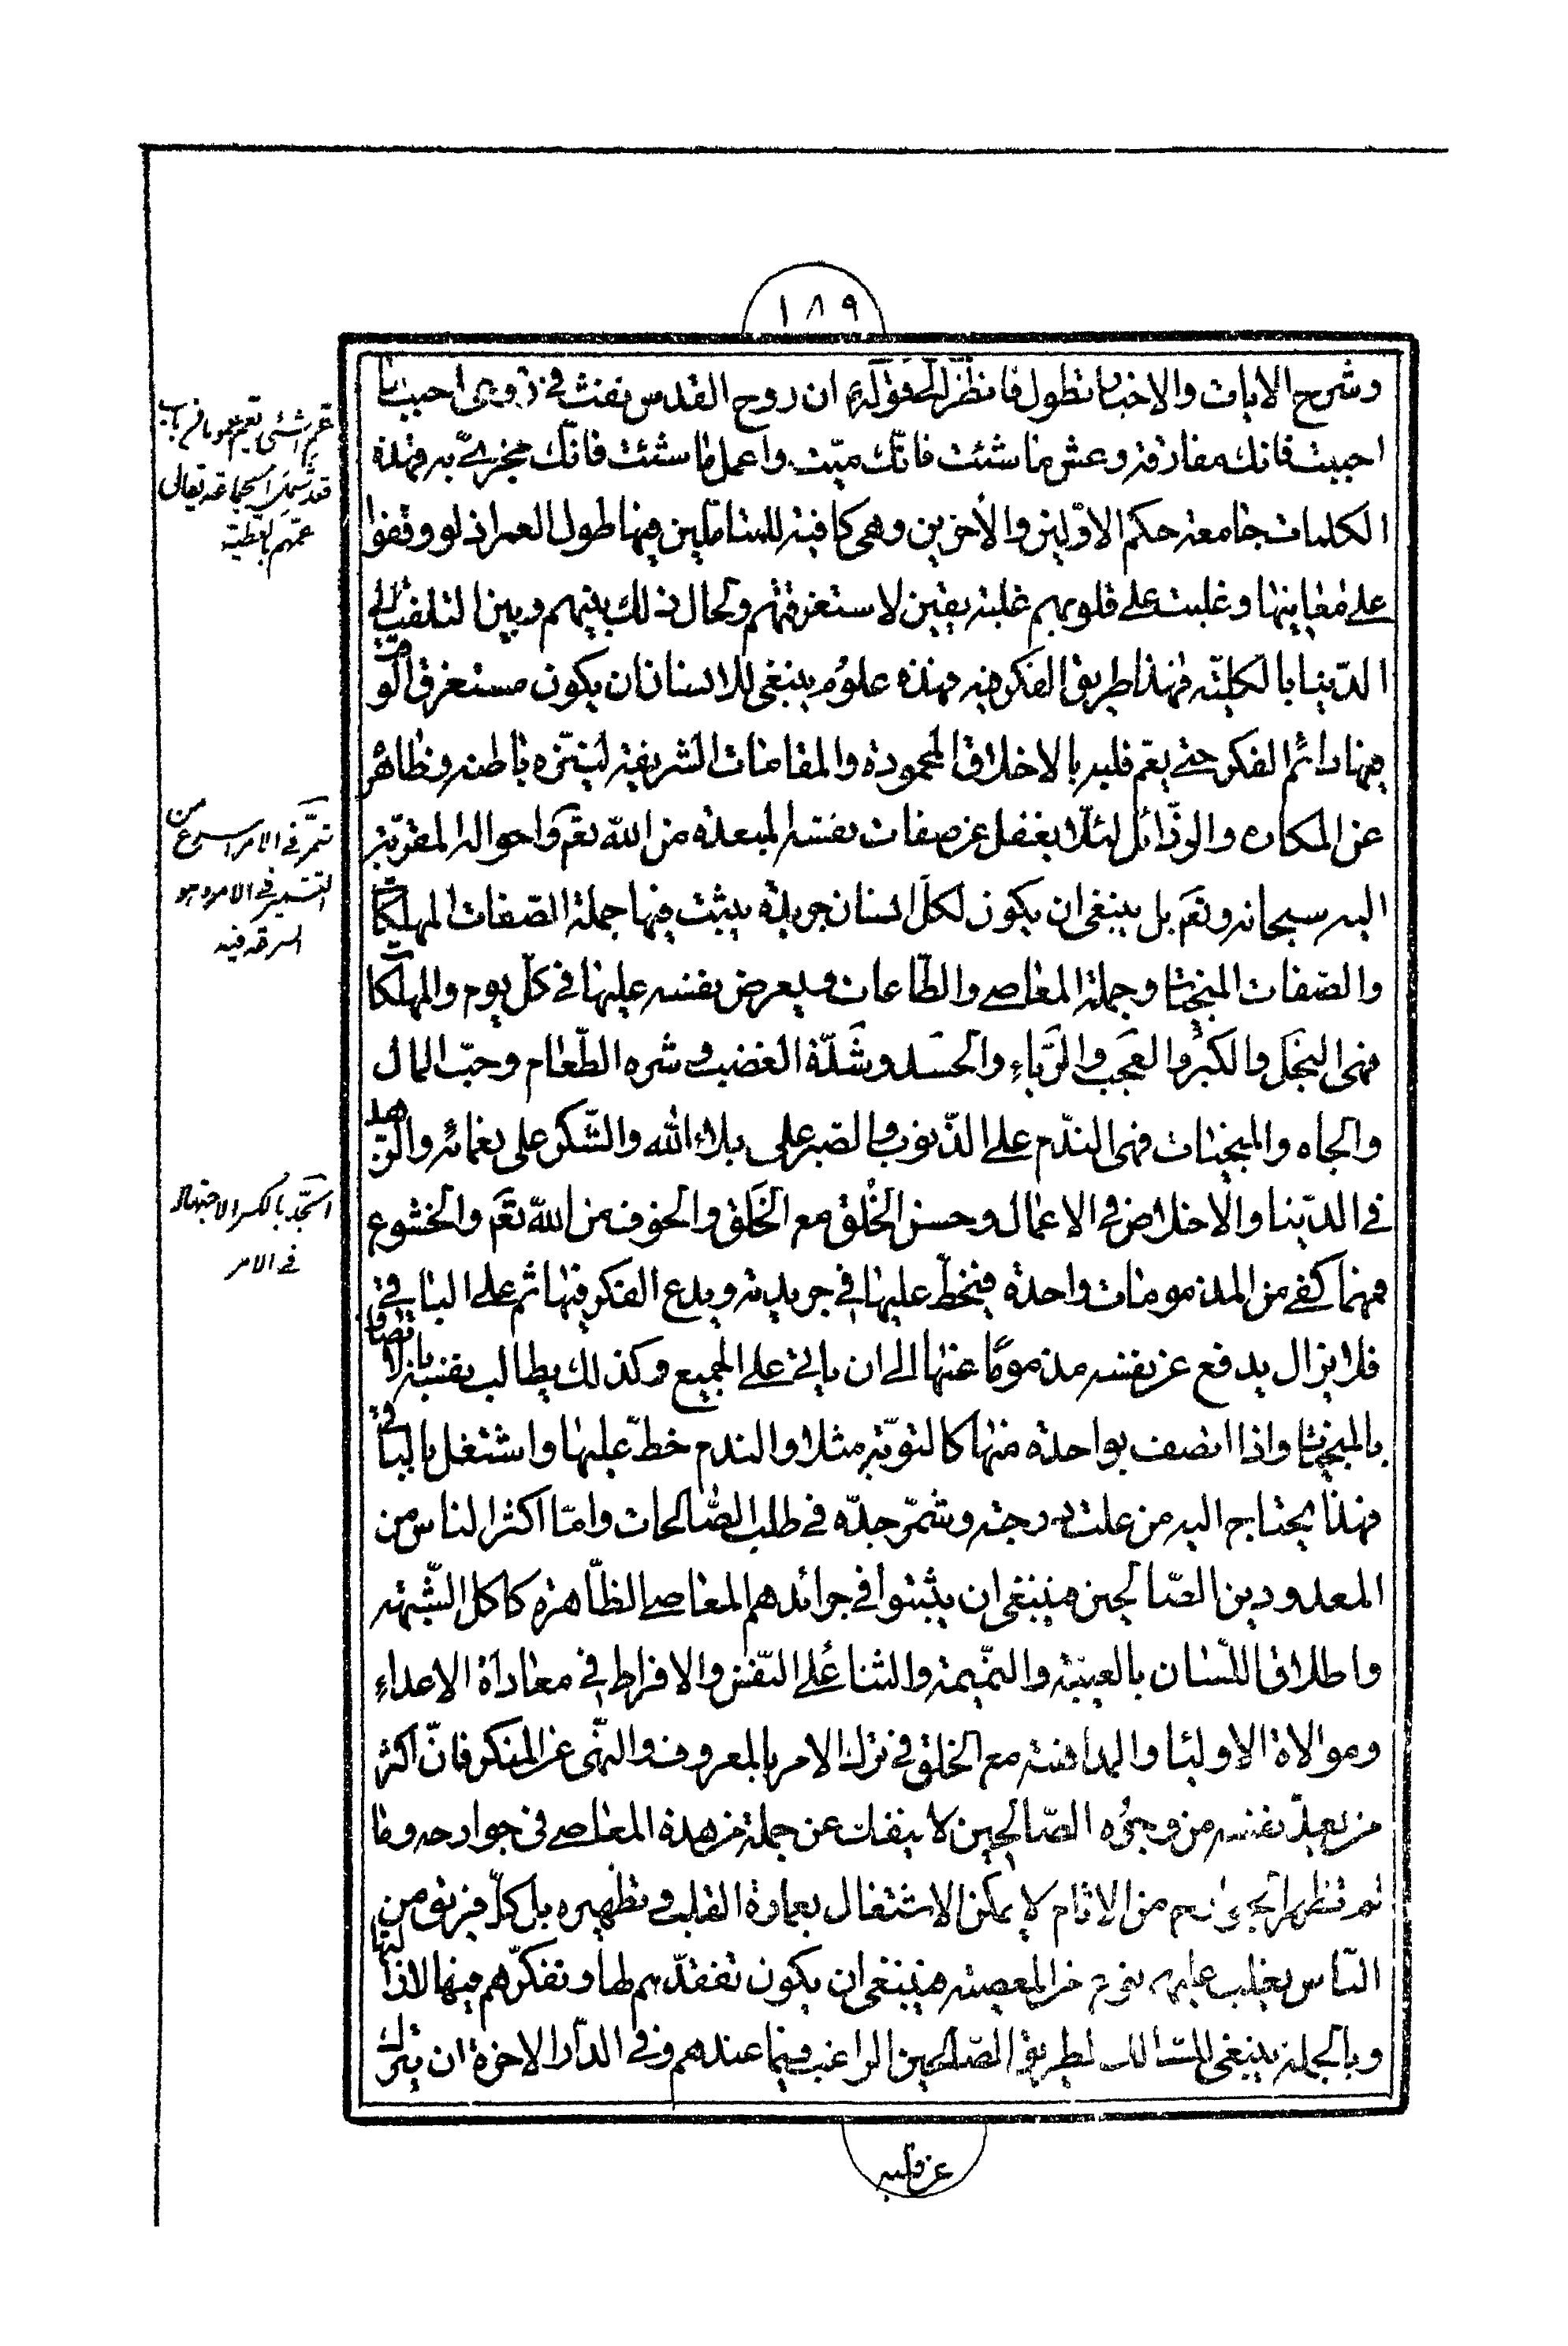 ١٨٩
وشرح الايات والاخبار تطول فانظر الى قوله ان روح القدس نفث في روعى احبب ما
احببت فانك مفارقه وعش ما شئت فانّك ميّت واعمل ما شئت فانّك مجزىّ به فهذه
الكلمات جامعة حكم الاوّلين والأخرين وهى كافية للمتاملين فيها طول العمر اذ لو وقفوا
على معاينها وغلبت على قلوبهم غلبة يقين لاستغرقتهم ولحال ذلك بينهم وبين التلفت الى
الدّنيا بالكليّة فهذا طريق الفكر فيه فهذه علوم ينبغى للانسان ان يكون مستغرق الوقت
فيها دائم الفكر حتى يعم قلبه بالاخلاق المحمودة والمقامات الشريفة ليتنزه باطنه وظاهره
عن المكاره والرذائل لئلّا يغفل عن صفات نفسه المبعدة من الله تعم واحواله المقربّة
اليه سبحانه وتعم بل ينبغى ان يكون لكل انسان جريدة يثبت فيها جملة الصّفات المهلكات
والصّفات المنجيات وجملة المعاصى والطّاعات ويعرض نفسه عليها في كلّ يوم والمهلكات
فهى البخل والكبر والعجب والرّياء والحسد وشدّة الغضب وشره الطّعام وحبّ المال
والجاه والمنجيات فهى الندّم على الذّنوب والصبر على بلاء الله والشّكر على نعمائه والزهد
في الدّنيا والاخلاص في الاعمال وحسن الخُلق مع الخَلق والخوف من الله تعم والخشوع
فمهما كفى من المذمومات واحدة فيخطّ عليها في جريدته ويدع الفكر فيها ثم على الباقى
فلا يزال يدفع عن نفسه مذموما عنها الى ان ياتى على الجميع وكذلك يطالب نفسه بالاتصاف
بالمنجيات واذا اتصف بواحدة منها كالتوبّة مثلا والندم خطّ عليها واشتغل بالباقى
فهذا يحتاج اليه من علت درجته وشمّر جدّه في طلب الصّالحات وامّا اكثر الناس من
المعدودين الصّالحين فينبغى ان يثبتوا في جرائدهم المعاصى الظّاهرة كاكل الشّبهة
واطلاق اللّسان بالغيبة والنمّيمة والثناء على النّفس والافراط في معاداة الاعداء
وموالاة الاولياء والمداهنة مع الخلق في ترك الامر بالمعروف والنّهى عن المنكر فانّ اكثر
من يعدّ نفسه من وجوه الصّالحين لا ينفك عن جملة من هذه المعاصى في جوارحه وما
لم تطهر الجوارح من الاثام لا يمكن الاشتغال بعمارة القلب وتطهيره بل كلّ فريق من
النّاس يغلب عليهم نوع من المعصية فينبغى ان يكون تفقدّهم لها وتفكرّهم فيها لازالتها
وبالجملة ينبغى للسّالك لطريق الصّالحين الراغب فيما عندهم وفى الدّار الاخرة ان يترك
عن قلبه
عم الشئى يعم عموما من باب
قعد شمل الجماعة يقال
عمّهم بالعطية
تشمّر في الامر اسرع من
التشمير في الامر وهو
السرعة فيه
الجّد بالكسر الاجتهاد
في الامر